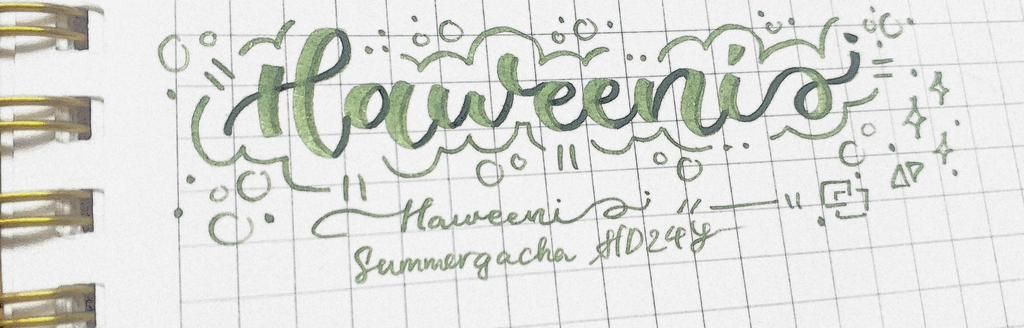 Haweeni
Haweeni
Summergacha HD24Y